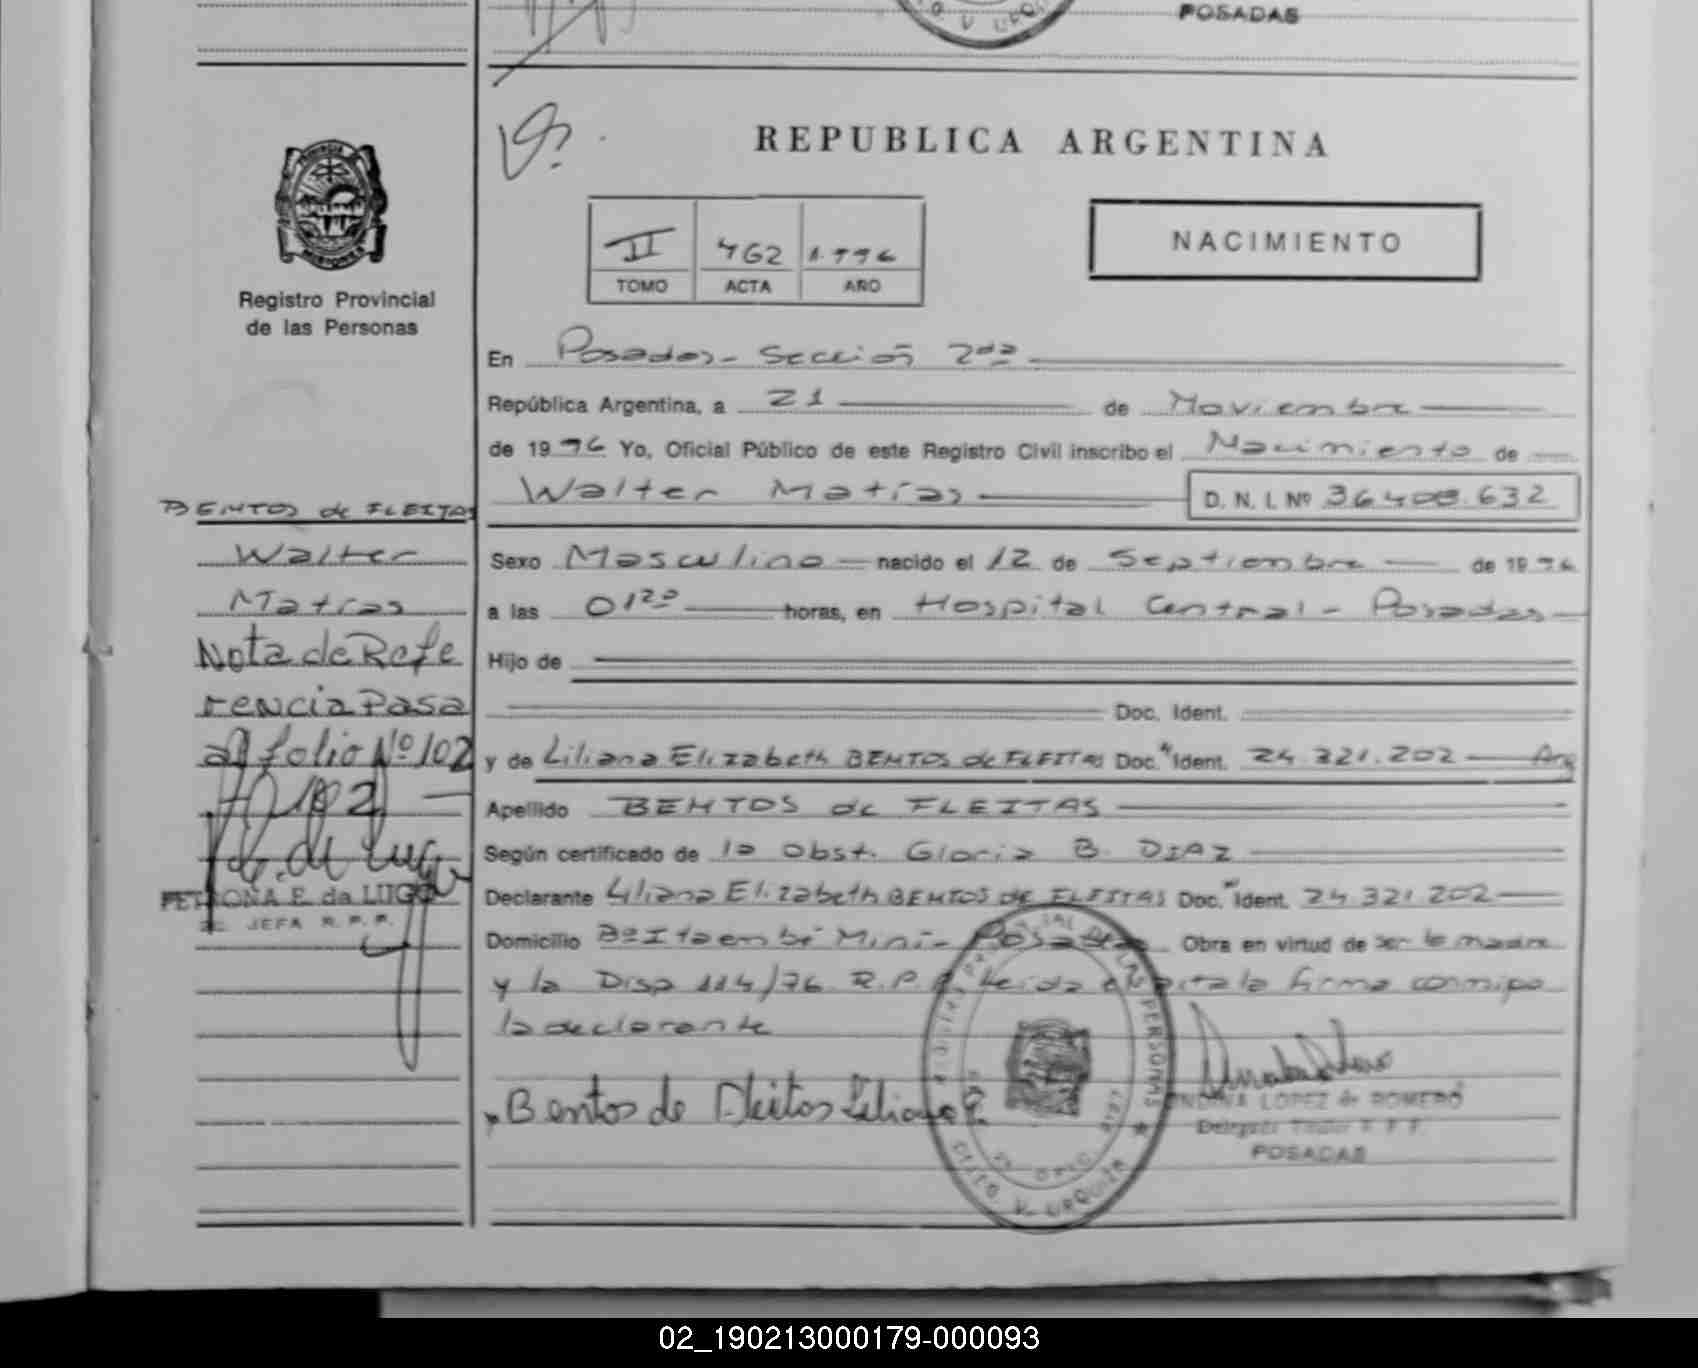 POSADAS
REPUBLICA ARGENTINA
II 462 1.996
TOMO ACTA AÑO
NACIMIENTO
Registro Provincial
de las Personas
En Posadas - Sección 2da
República Argentina, a 21 de Noviembre
de 1996 Yo, Oficial Público de este Registro Civil inscribo el Nacimiento de
Walter Matías D. N. I. Nº 36.408.632
Sexo Masculino nacido el 12 de Septiembre de 1996
a las 01²⁰ horas, en Hospital Central - Posadas
Hijo de
Doc. Ident.
y de Liliana Elizabeth BENTOS de FLEITAS Doc. Ident. 24.321.202 Arg
Apellido BENTOS de FLEITAS
Según certificado de la Obst. Gloria B. DIAZ
Declarante Liliana Elizabeth BENTOS de FLEITAS Doc. Ident. 24.321.202
Domicilio Bº Itaembé Miní - Posadas Obra en virtud de ser la madre
y la Disp 114/76 R.P.P. Leida el acta la firma conmigo
la declarante
Bentos de Fleitas Liliana E.
LOPEZ de ROMERO
Delegada Titular R. P. P.
POSADAS
BENTOS de FLEITAS
Walter
Matías
Nota de Refe
rencia Pasa
al folio Nº 102
102
PETRONA E. de LUGO
JEFA R. P. P.
DE LAS PERSONAS
DPTO. V. URQUIZA
02_190213000179-000093